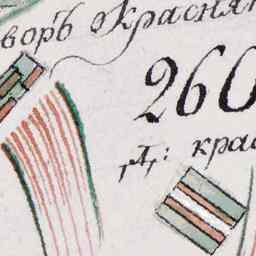 воръ Красня
260
Д: крас